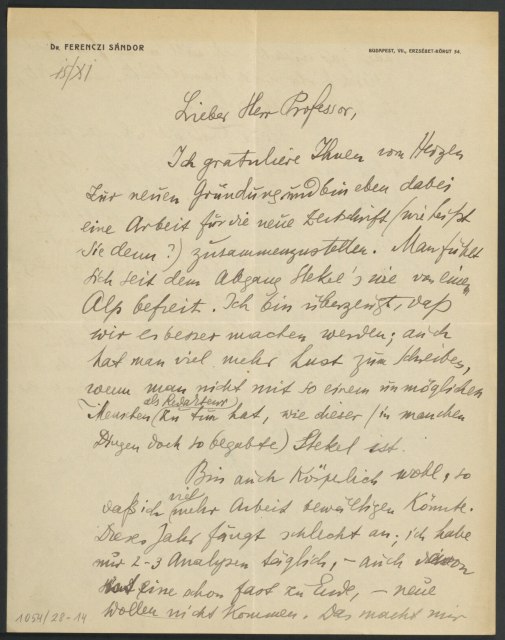 Dr. FERENCZI SÁNDOR
BUDAPEST, VII., ERZSÉBET-KÖRUT 54.
15/XI
Lieber Herr Professor,
Ich gratuliere Ihnen vom Herzen
zur neuen Gründung und bin eben dabei
eine Arbeit für die neue Zeitschrift (wie heißt
sie denn?) zusammenzustellen. Man fühlt
sich seit dem Abgang Stekel's wie von einem
Alp befreit. Ich bin überzeugt, daß
wir es besser machen werden; auch
hat man viel mehr Lust zum Schreiben,
wenn man nicht mit so einem unmöglichen
als Redakteur
Menschen (zu tun hat, wie dieser (in manchen
Dingen doch so begabte) Stekel ist.
Bin auch körperlich wohl, so
viel
daß ich mehr Arbeit bewältigen könnte.
Dieses Jahr fängt schlecht an; ich habe
nur 2-3 Analysen täglich, – auch davon
eine schon fast zu Ende, – neue
wollen nicht kommen. Das macht mir
1054/28-14